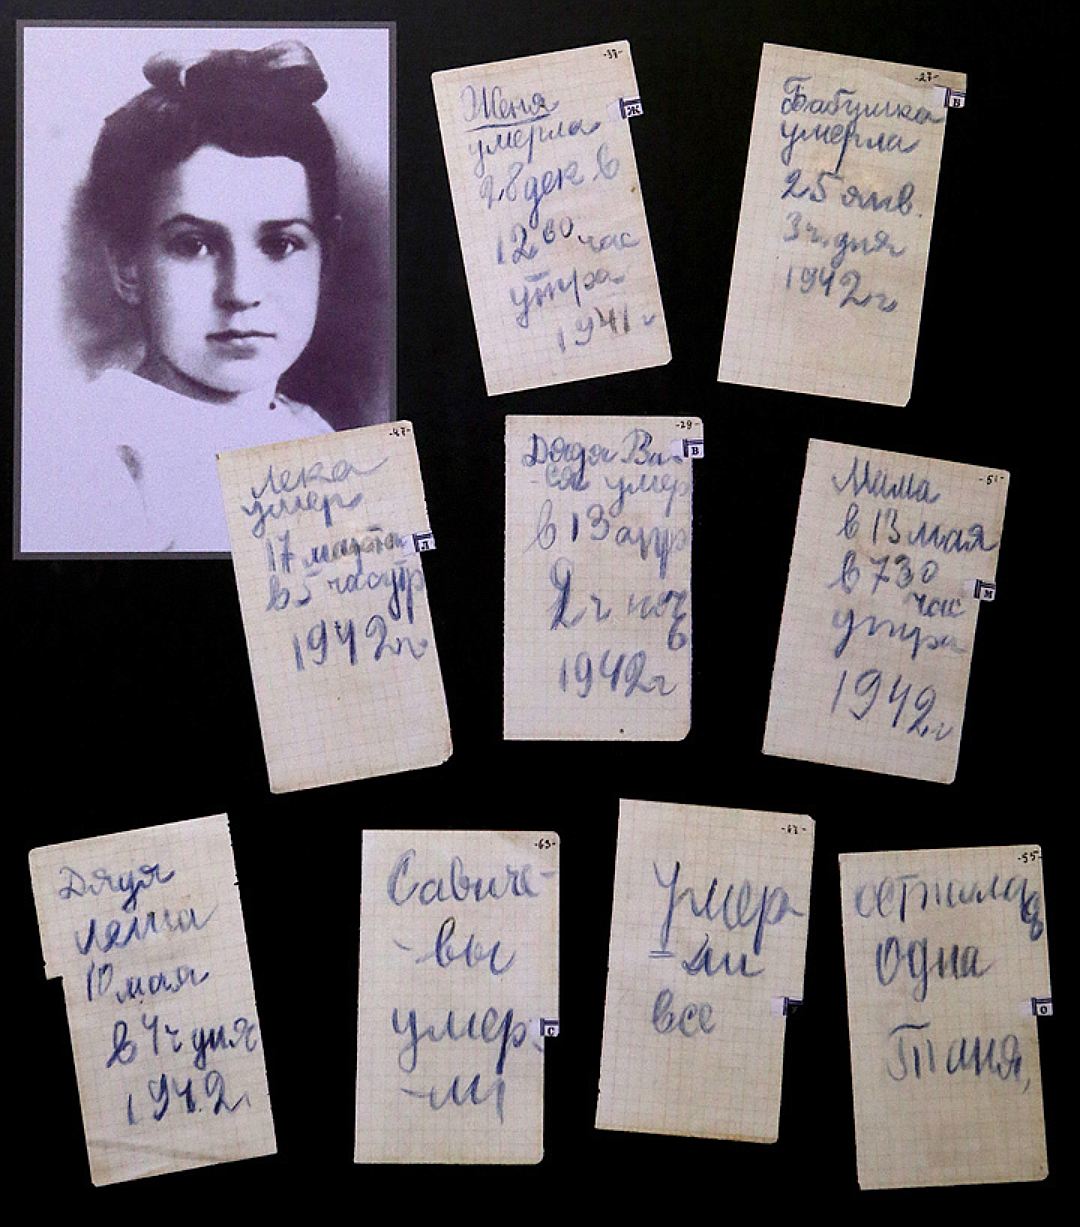 -37-
Ж
Женя
умерла
28 дек в
12 00 час
утра
1941 г
-27-
Б
Бабушка
умерла
25 янв.
3 ч. дня
1942 г.
-47-
Л
Лека
умер
17 марта
в 5 час утр
1942 г
-29-
В
Дядя Ва-
ся умер
в 13 апр
2 ч ноч
в
1942 г
-51-
М
Мама
в 13 мая
в 7 30
час
утра
1942 г
Дядя
Леша
10 мая
в 4 ч дня
1942
-63-
С
Савиче-
-вы
умер-
-ли
Умер
-ли
все
-55-
О
осталась
одна
Таня